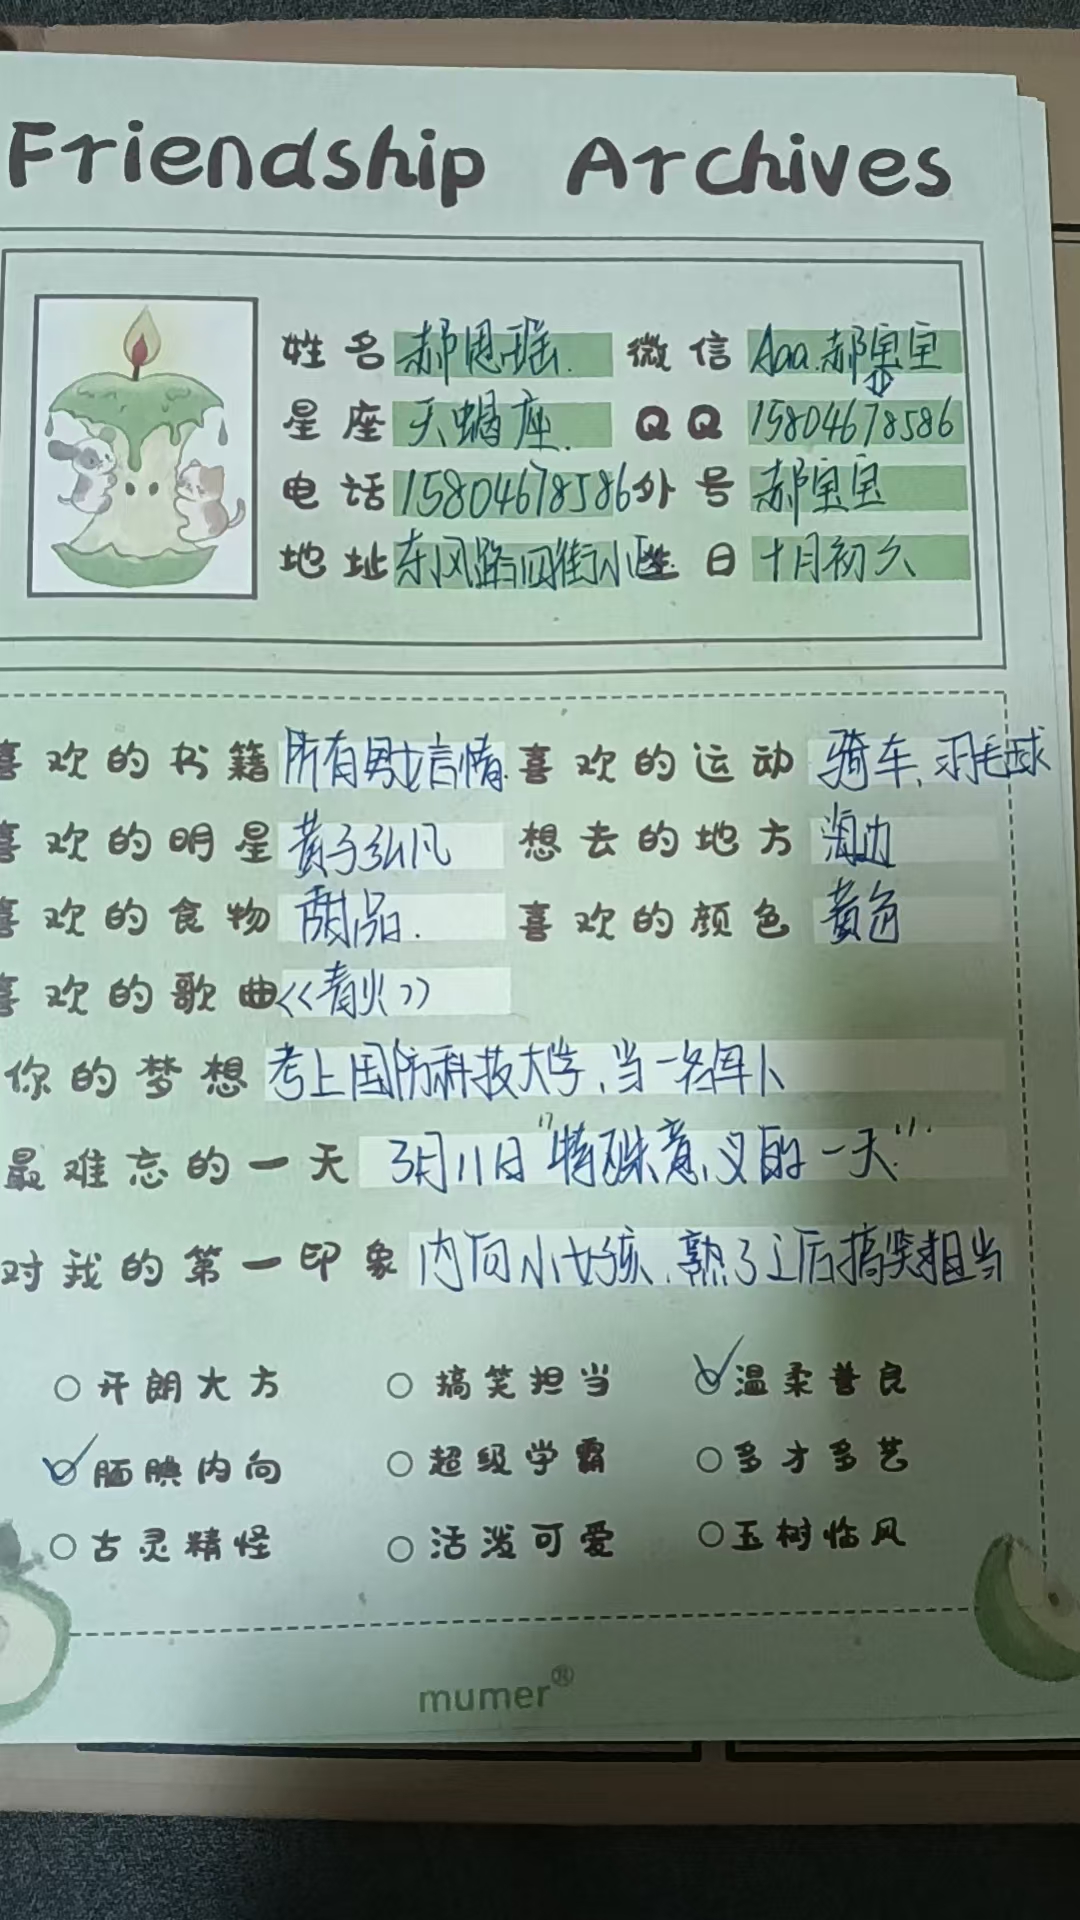 Friendship Archives
姓名 郝思瑶. 微信 Aaa.郝宝宝
星座 天蝎座. QQ 15804678586
电话 15804678586 外号 郝宝宝
地址 东风路四街小区 生日 十月初六
喜欢的书籍 所有男女言情. 喜欢的运动 骑车、羽毛球
喜欢的明星 黄子弘凡 想去的地方 海边
喜欢的食物 甜品. 喜欢的颜色 黄色
喜欢的歌曲 <<青火>>
你的梦想 考上国防科技大学、当一名军人
最难忘的一天 3月11日"特殊意义的一天".
对我的第一印象 内向小女孩、熟了之后搞笑担当
开朗大方 搞笑担当 温柔善良
腼腆内向 超级学霸 多才多艺
古灵精怪 活泼可爱 玉树临风
mumer®